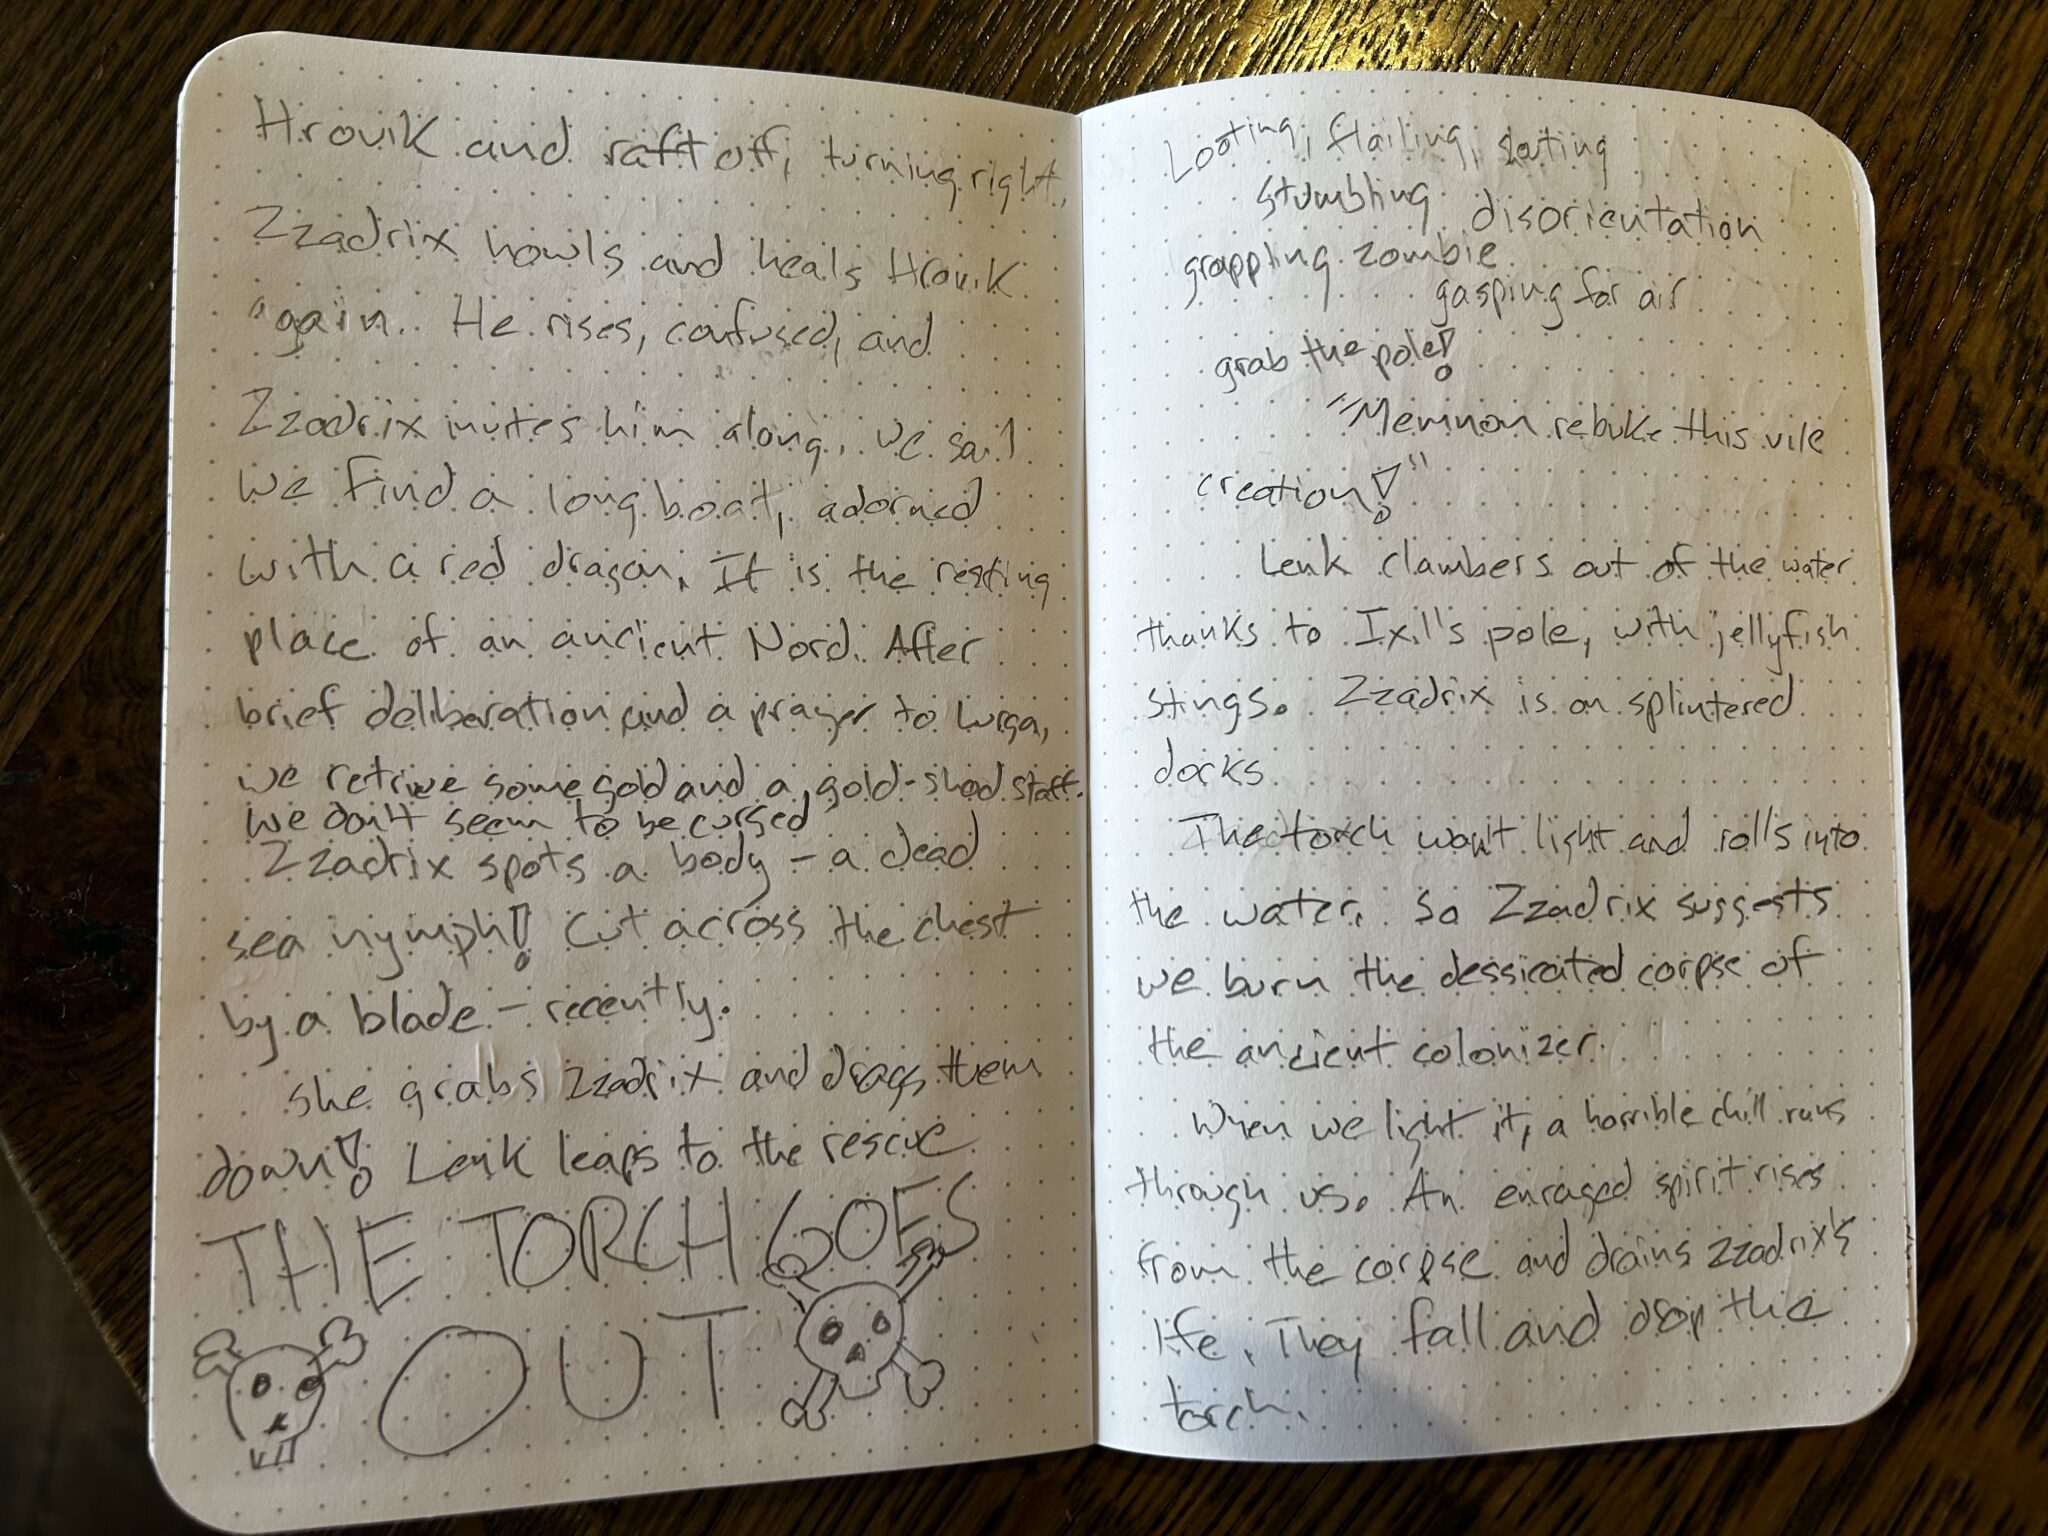 Hrovik and raft off, turning right.
Zzadrix howls and heals Hrovik
again. He rises, confused, and
Zzadrix invites him along. we sail
We find a longboat, adorned
with a red dragon. It is the resting
place of an ancient Nord. After
brief deliberation and a prayer to Lurga,
we retrive some gold and a gold-shod staff.
We don't seem to be cursed
Zzadrix spots a body - a dead
sea nymph! Cut across the chest
by a blade - recently.
She grabs Zzadrix and drags them
down! Lenk leaps to the rescue
THE TORCH GOES
OUT
Looting, flailing,
stumbling disorientation
grappling zombie
gasping for air
grab the pole!
"Memnon rebuke this vile
creation!"
Lenk clambers out of the water
thanks to Ixil's pole, with jellyfish
stings. Zzadrix is on splintered
docks
The torch won't light and rolls into
the water. So Zzadrix suggests
we burn the dessicated corpse of
the ancient colonizer.
When we light it, a horrible chill runs
through us. An enraged spirit rises
from the corpse and drains Zzadrix's
life. They fall and drop the
torch.